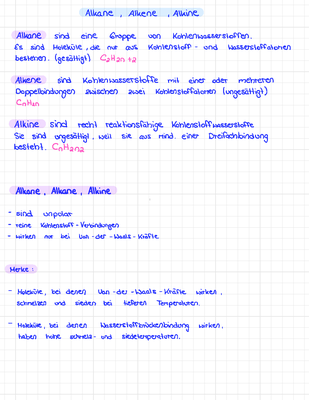 Alkane, Alkene, Alkine
Alkane sind eine Gruppe von Kohlenwasserstoffen.
Es sind Moleküle, die nur aus Kohlenstoff- und Wasserstoffatomen
bestehen. (gesättigt) C2H2n+2
Alkene sind Kohlenwasserstoffe mit einer oder mehreren
Doppelbindungen zwischen zwei Kohlenstoffatomen (ungesättigt)
CnH2n
Alkine sind recht reaktionsfähige Kohlenstoffwasserstoffe
Sie sind ungesättigt, weil sie aus mind. einer Dreifachbindung
besteht. CnH2n2
Alkane, Alkane, Alkine
- sind unpolar
- reine Kohlenstoff-Verbindungen
- wirken nur bei Van-der-Waals-Kräfte
Merke:
- Moleküle, bei denen Van-der-Waals-Kräfte wirken,
schmelzen und sieden bei tieferen Temperaturen.
- Moleküle, bei denen Wasserstoffbrückenbindung wirken,
haben hohe schmelz- und siedetemperaturen.